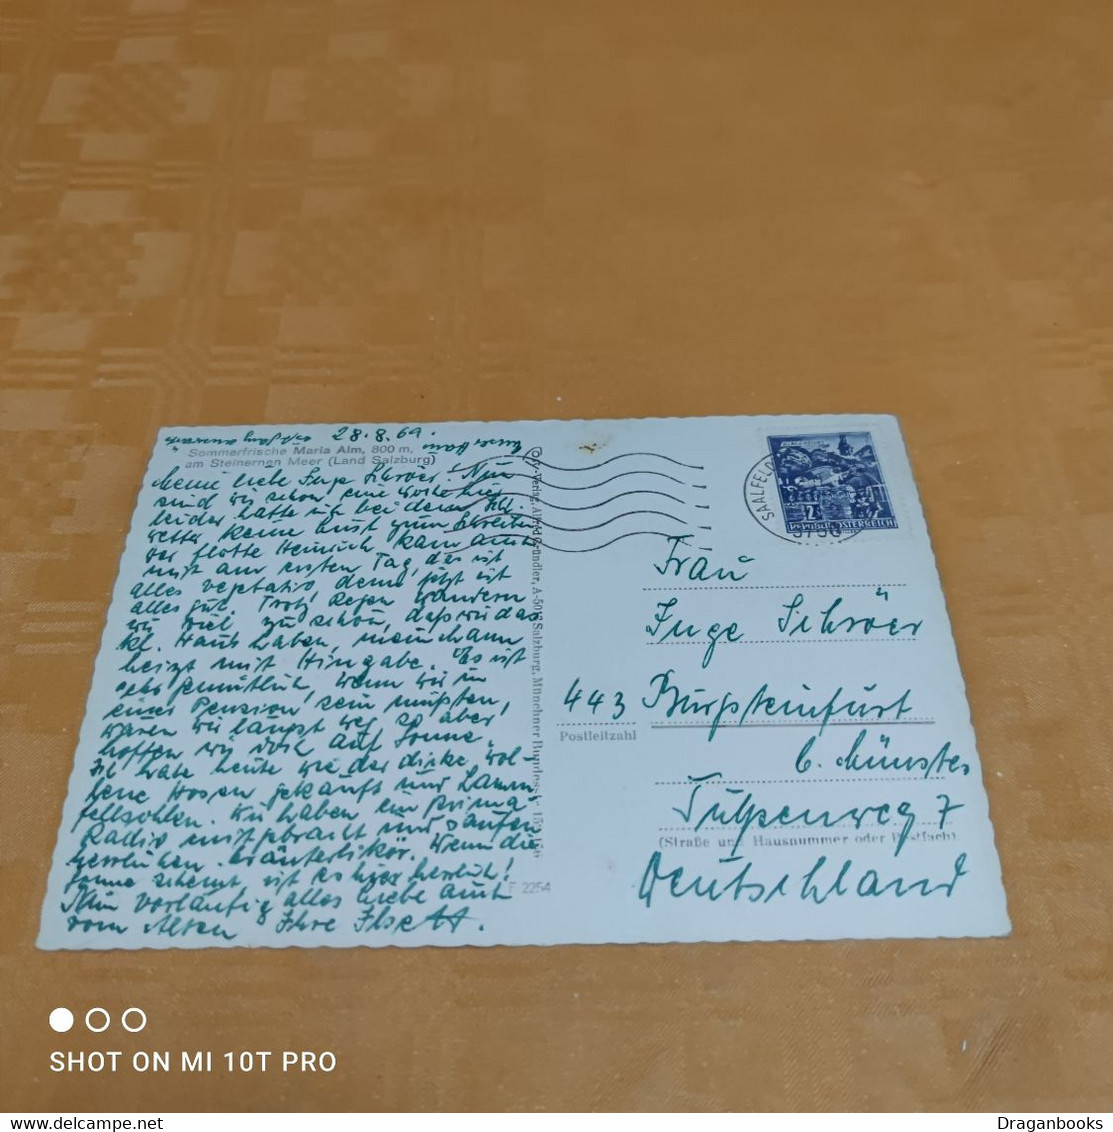 28.8.69.
Sommerfrische Maria Alm, 800 m,
am Steinernen Meer (Land Salzburg)
Meine liebe Inge Schröer! Nun
sind wir schon eine Woche hier
leider hatte ich bei dem
wetter keine Lust zum Schreiben
der flotte Heinrich kam auch
mit am ersten Tag, das ist
alles vegetativ denn jetzt ist
alles gut. Trotz Regen wandern
wir viel zu schön, daß wir das
kl. Haus haben, mein Mann
heizt mit Hingabe. Es ist
sehr gemütlich, wenn wir in
einer Pension sein müßten,
wären wir längst weg so aber
hoffen wir doch auf Sonne.
Ich habe heute wie der dicke, wol-
lene Hosen gekauft und Lamm
fellsohlen. Wir haben ein prima
Radio mitgebracht und saufen
herrlichen Kräuterlikör. Wenn die
Sonne scheint, ist es hier herrlich!
Nun vorläufig alles Liebe auch
vom Alten Ihre Ilse H.
F 2254
SAALFELD
REPUBLIK ÖSTERREICH
Frau
Inge Schröer
443 Burgsteinfurt
Postleitzahl
b. Münster
Tulpenweg 7
(Straße und Hausnummer oder Postfach)
Deutschland
SHOT ON MI 10T PRO
Draganbooks